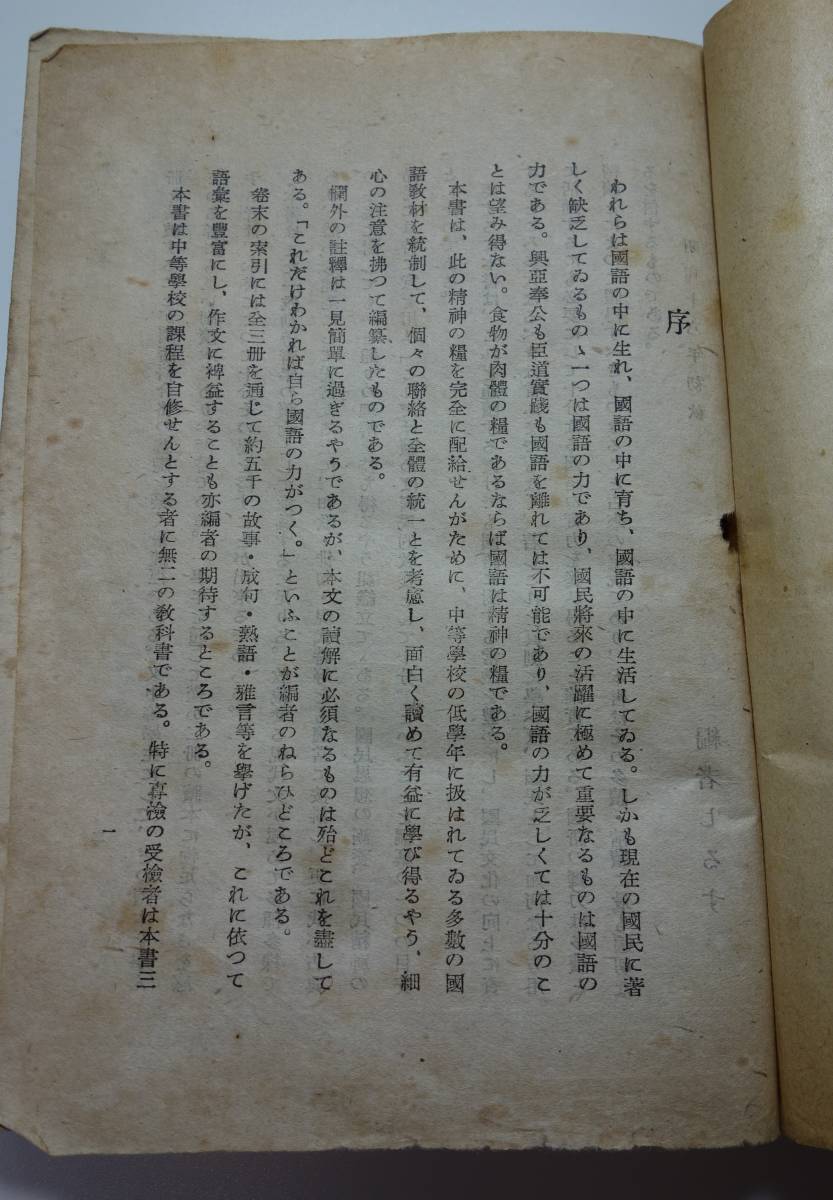 序
われらは國語の中に生れ、國語の中に育ち、國語の中に生活してゐる。しかも現在の國民に著
しく缺乏してゐるものゝ一つは國語の力であり、國民將來の活躍に極めて重要なるものは國語の
力である。興亞奉公も臣道實踐も國語を離れては不可能であり、國語の力が乏しくては十分のこ
とは望み得ない。食物が肉體の糧であるならば國語は精神の糧である。
本書は、此の精神の糧を完全に配給せんがために、中等學校の低學年に扱はれてゐる多數の國
語敎材を統制して、個々の聯絡と全體の統一とを考慮し、面白く讀めて有益に學び得るやう、細
心の注意を拂つて編纂したものである。
欄外の註釋は一見簡單に過ぎるやうであるが、本文の讀解に必須なるものは殆どこれを盡して
ある。「これだけわかれば自ら國語の力がつく。」といふことが編者のねらひどころである。
卷末の索引には全三册を通じて約五千の故事・成句・熟語・雅言等を擧げたが、これに依つて
語彙を豐富にし、作文に裨益することも亦編者の期待するところである。
本書は中等學校の課程を自修せんとする者に無二の敎科書である。特に專檢の受檢者は本書三
一